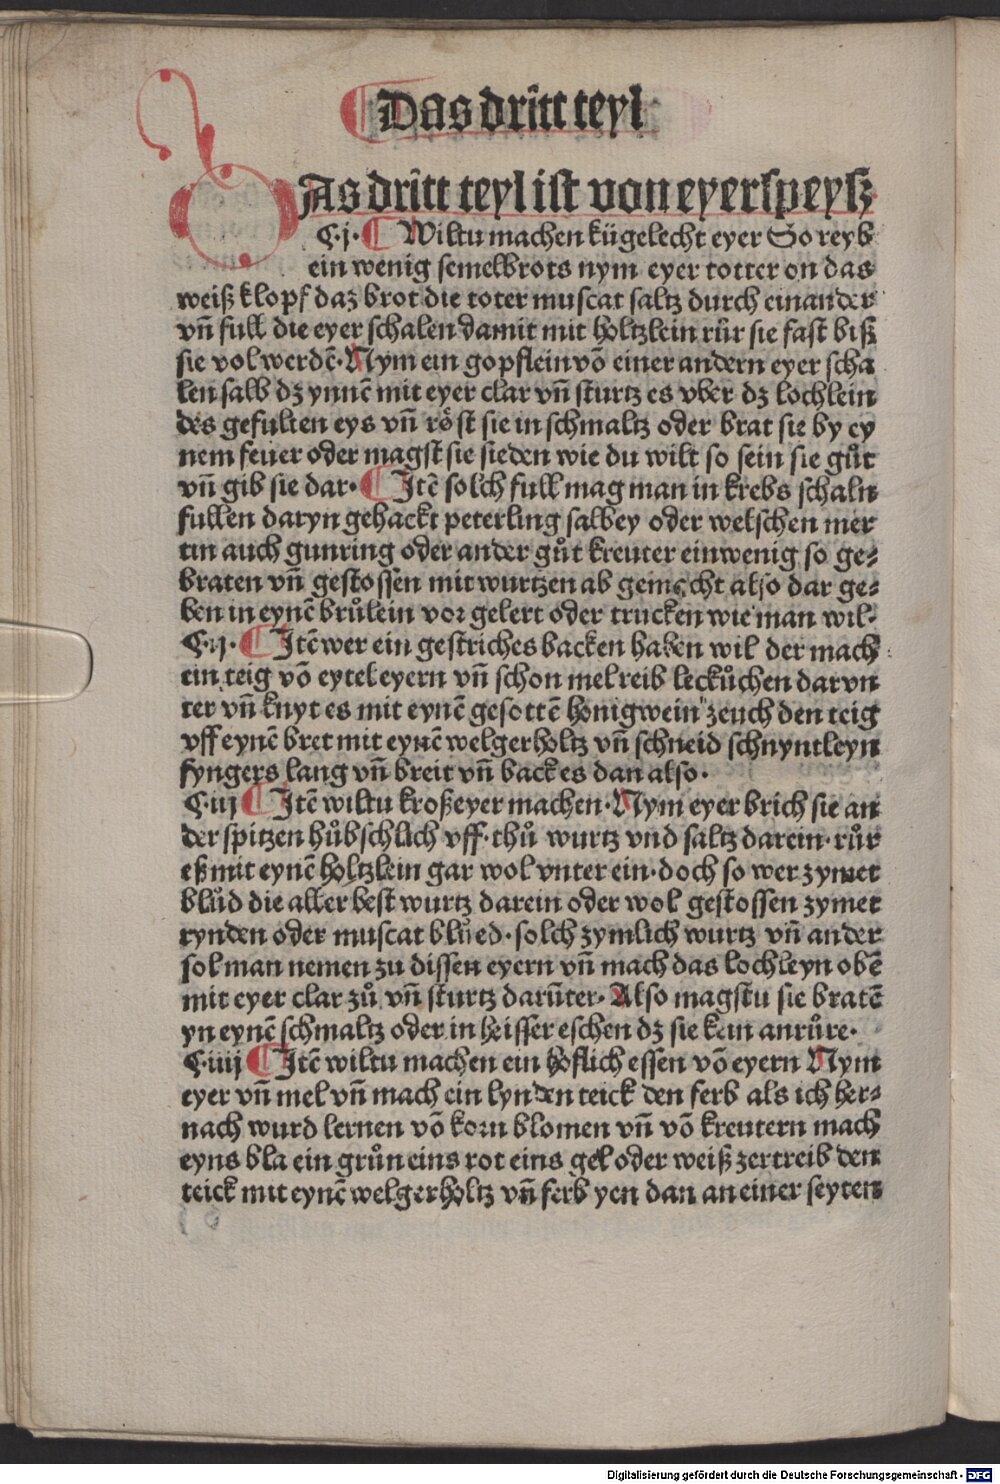 Das dritt teyl
DAs dritt teyl ist von eyerspeysz
C·j· Wiltu machen kügelecht eyer So reyb
ein wenig semelbrots nym eyer totter on das
weiß klopf daz brot die toter muscat saltz durch einander
vñ full die eyer schalen damit mit holtzlein rür sie fast biß
sie vol werdẽ· Nym ein gopflein võ einer andern eyer scha
len salb dz ynnẽ mit eyer clar vñ sturtz es vber dz lochlein
des gefulten eys vñ röst sie in schmaltz oder brat sie by ey
nem feuer oder magst sie sieden wie du wilt so sein sie gůt
vñ gib sie dar· Itẽ solch full mag man in krebs schaln
fullen daryn gehackt peterling salbey oder welschen mer
tin auch gunring oder ander gůt kreuter ein wenig so ge⸗
braten vñ gestossen mit wurtzen ab gemacht also dar ge⸗
ben in eynẽ brůlein vor gelert oder trucken wie man wil·
C·ij· Itẽ wer ein gestriches backen haben wil der mach
ein teig võ eytel eyern vñ schon mel reib leckůchen darvn
ter vñ knyt es mit eynẽ gesottẽ honigwein zeuch den teig
vff eynẽ bret mit eynẽ welgerholtz vñ schneid schnyntleyn
fyngers lang vñ breit vñ back es dan also·
C·iij Itẽ wiltu kroßeyer machen· Nym eyer brich sie an
der spitzen hůbschlich vff· thů wurtz vnd saltz darein· růr
eß mit eynẽ holtzlein gar wol vnter ein· doch so wer zymet
blůd die aller best wurtz darein oder wol gestossen zymet
rynden oder muscat blůed· solch zymlich wurtz vñ ander
sol man nemen zu dissen eyern vñ mach das lochleyn obẽ
mit eyer clar zů vñ sturtz darũter· Also magstu sie bratẽ
yn eynẽ schmaltz oder in heisser eschen dz sie kein anrůre·
C·iiij Itẽ wiltu machen ein hoflich essen võ eyern Nym
eyer vñ mel vñ mach ein lynden teick den ferb als ich her⸗
nach wurd lernen võ korn blomen vñ võ kreutern mach
eyns bla ein grůn eins rot eins gel oder weiß zertreib den
teick mit eynẽ welgerholtz vñ ferb yen dan an einer seyten
Digitalisierung gefördert durch die Deutsche Forschungsgemeinschaft - DFG